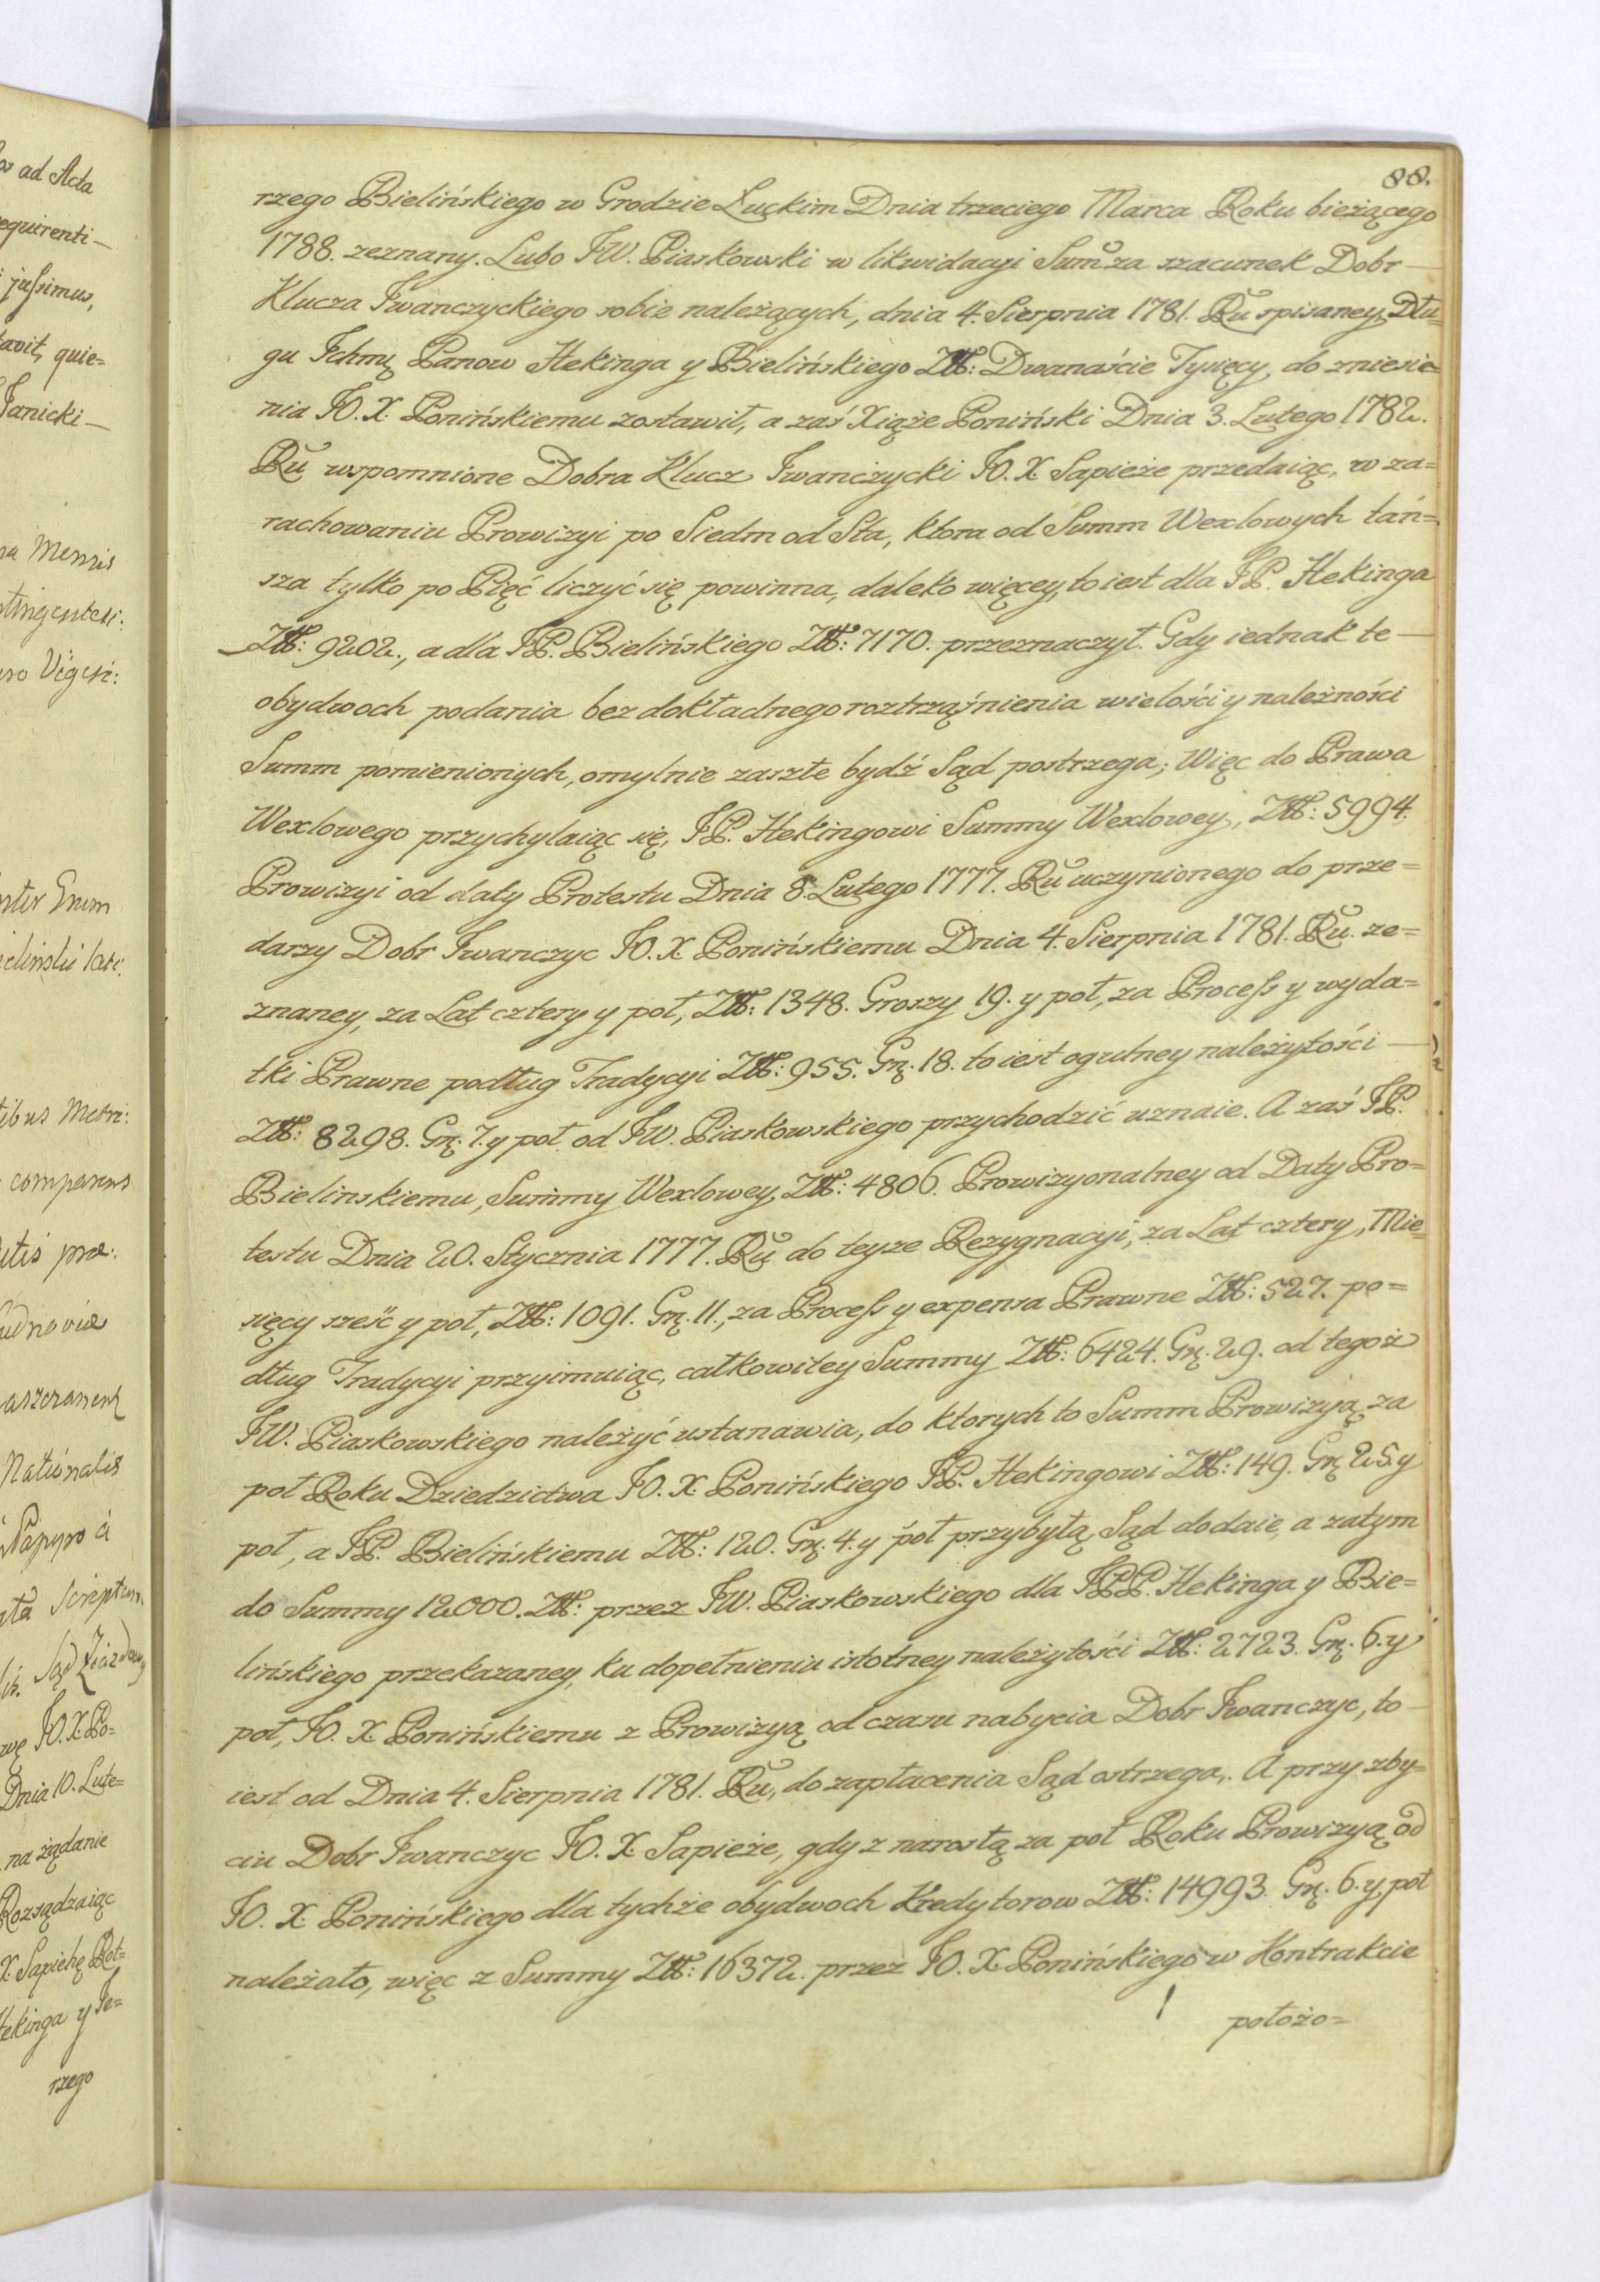 os ad Acta
equirenti_
jussimus,
tavit, quie=
Janicki_
Mensis
ntingenteri:
Vigesi:
Enum
ielinslii
Metri:
comparens
pro:
Nationalis
Papyro
Scriptum
Sąd Ziazdowy
wę JO. X. Po=
Dnia 10. Lute=
na żądanie
Rozsądzaiąc
X. Sapiehę Rot=
Hekinga y Je=
rzego
88.
rzego Bielińskiego w Grodzie Łuckim Dnia trzeciego Marca Roku bieżącego
1788. zeznany. Lubo JW. Piaskowski w likwidacyi Summ za szacunek Dobr_
Klucza Iwanczyckiego sobie należących, dnia 4. Sierpnia 1781. Ru spisaney, Dłu=
gu Ichmę Panow Hekinga y Bielińskiego Złł: Dwanaście Tysięcy, do zniesie=
nia JO. X. Ponińskiemu zostawił, a zaś Xiąże Poniński Dnia 3. Lutego 1782.
Ru wspomnione Dobra Klucz Iwanczycki JO. X Sapieże przedaiąc, w za=
rachowaniu Prowizyi po Siedm od Sta, ktora od Summ Wexlowych tań=
sza tylko po Pięć liczyć się powinna, daleko więcey, to iest dla JP. Hekinga
Złł: 9202., a dla JP. Bielińskiego Złł: 7170. przeznaczył. Gdy iednak te_
obydwoch podania bez dokładnego roztrząśnienia wielości y należności
Summ pomienionych, omylnie zaszłe bydź Sąd postrzega; Więc do Prawa
Wexlowego przychylaiąc się, JP. Hekingowi Summy Wexlowey, Złł: 5994.
Prowizyi od daty Protestu Dnia 8. Lutego 1777. Ru uczynionego do prze=
darzy Dobr Iwanczyc JO. X Ponińskiemu Dnia 4. Sierpnia 1781. Ru. ze=
znaney, za Lat cztery y poł, Złł: 1348. Groszy 19. y poł, za Process y wyda=
tki Prawne podług Tradycyi Złł: 955. Grę. 18. to iest ogulney należytości_
Złł: 8298. Grę: 7. y poł od JW. Piaskowskiego przychodzić uznaie. A zaś JP.
Bielinskiemu, Summy Wexlowey, Złł: 4806. Prowizyonalney od Daty Pro=
testu Dnia 20. Stycznia 1777. Ru do teyże Rezygnacyi, za Lat cztery, Mie=
sięcy sześć y poł, Złł: 1091. Grę. 11., za Process y expensa Prawne Złł: 527. po=
dług Tradycyi przyimuiąc, całkowitey Summy Złł: 6424. Grę. 29. od tegoż
JW. Piaskowskiego należyć ustanawia, do ktorych to Summ Prowizyią za
poł Roku Dziedzictwa JO. X. Ponińskiego JP. Hekingowi Złł: 149. Grę 25. y
poł, a JP. Bielińskiemu Złł: 120. Grę: 4. y poł przybyłą, Sąd dodaie, a zatym
do Summy 12000. Złł: przez JW. Piaskowskiego dla JPP. Hekinga y Bie=
lińskiego przekazaney, ku dopełnieniu istotney należytości Złł: 2723. Grę. 6. y
poł, JO. X Ponińskiemu z Prowizyą od czasu nabycia Dobr Iwanczyc, to_
iest od Dnia 4. Sierpnia 1781. Ru, do zapłacenia Sąd ostrzega. A przy zby=
ciu Dobr Iwanczyc JO. X Sapieże, gdy z narosłą za poł Roku Prowizyią od
JO. X Ponińskiego dla tychże obydwoch Kredytorow Złł: 14993. Grę. 6. y poł
należało, więc z Summy Złł: 16372. przez JO. X Ponińskiego w Kontrakcie
położo=